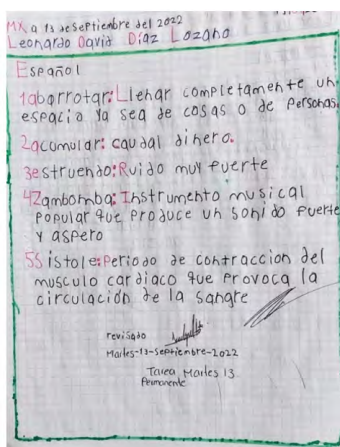 MX a 13 de Septiembre del 2022
Leonardo David Díaz Lozano
Español
1abarrotar: Llenar completamente un
espacio ya sea de cosas o de Personas.
2acumular: caudal dinero.
3estruendo: Ruido muy fuerte
4Zambomba: Instrumento musical
Popular que Produce un sonido fuerte
y aspero
5Sistole: Periodo de contraccion del
musculo cardiaco que Provoca la
circulación de la sangre
revisado
Martes-13-Septiembre-2022
Tarea Martes 13
Permanente